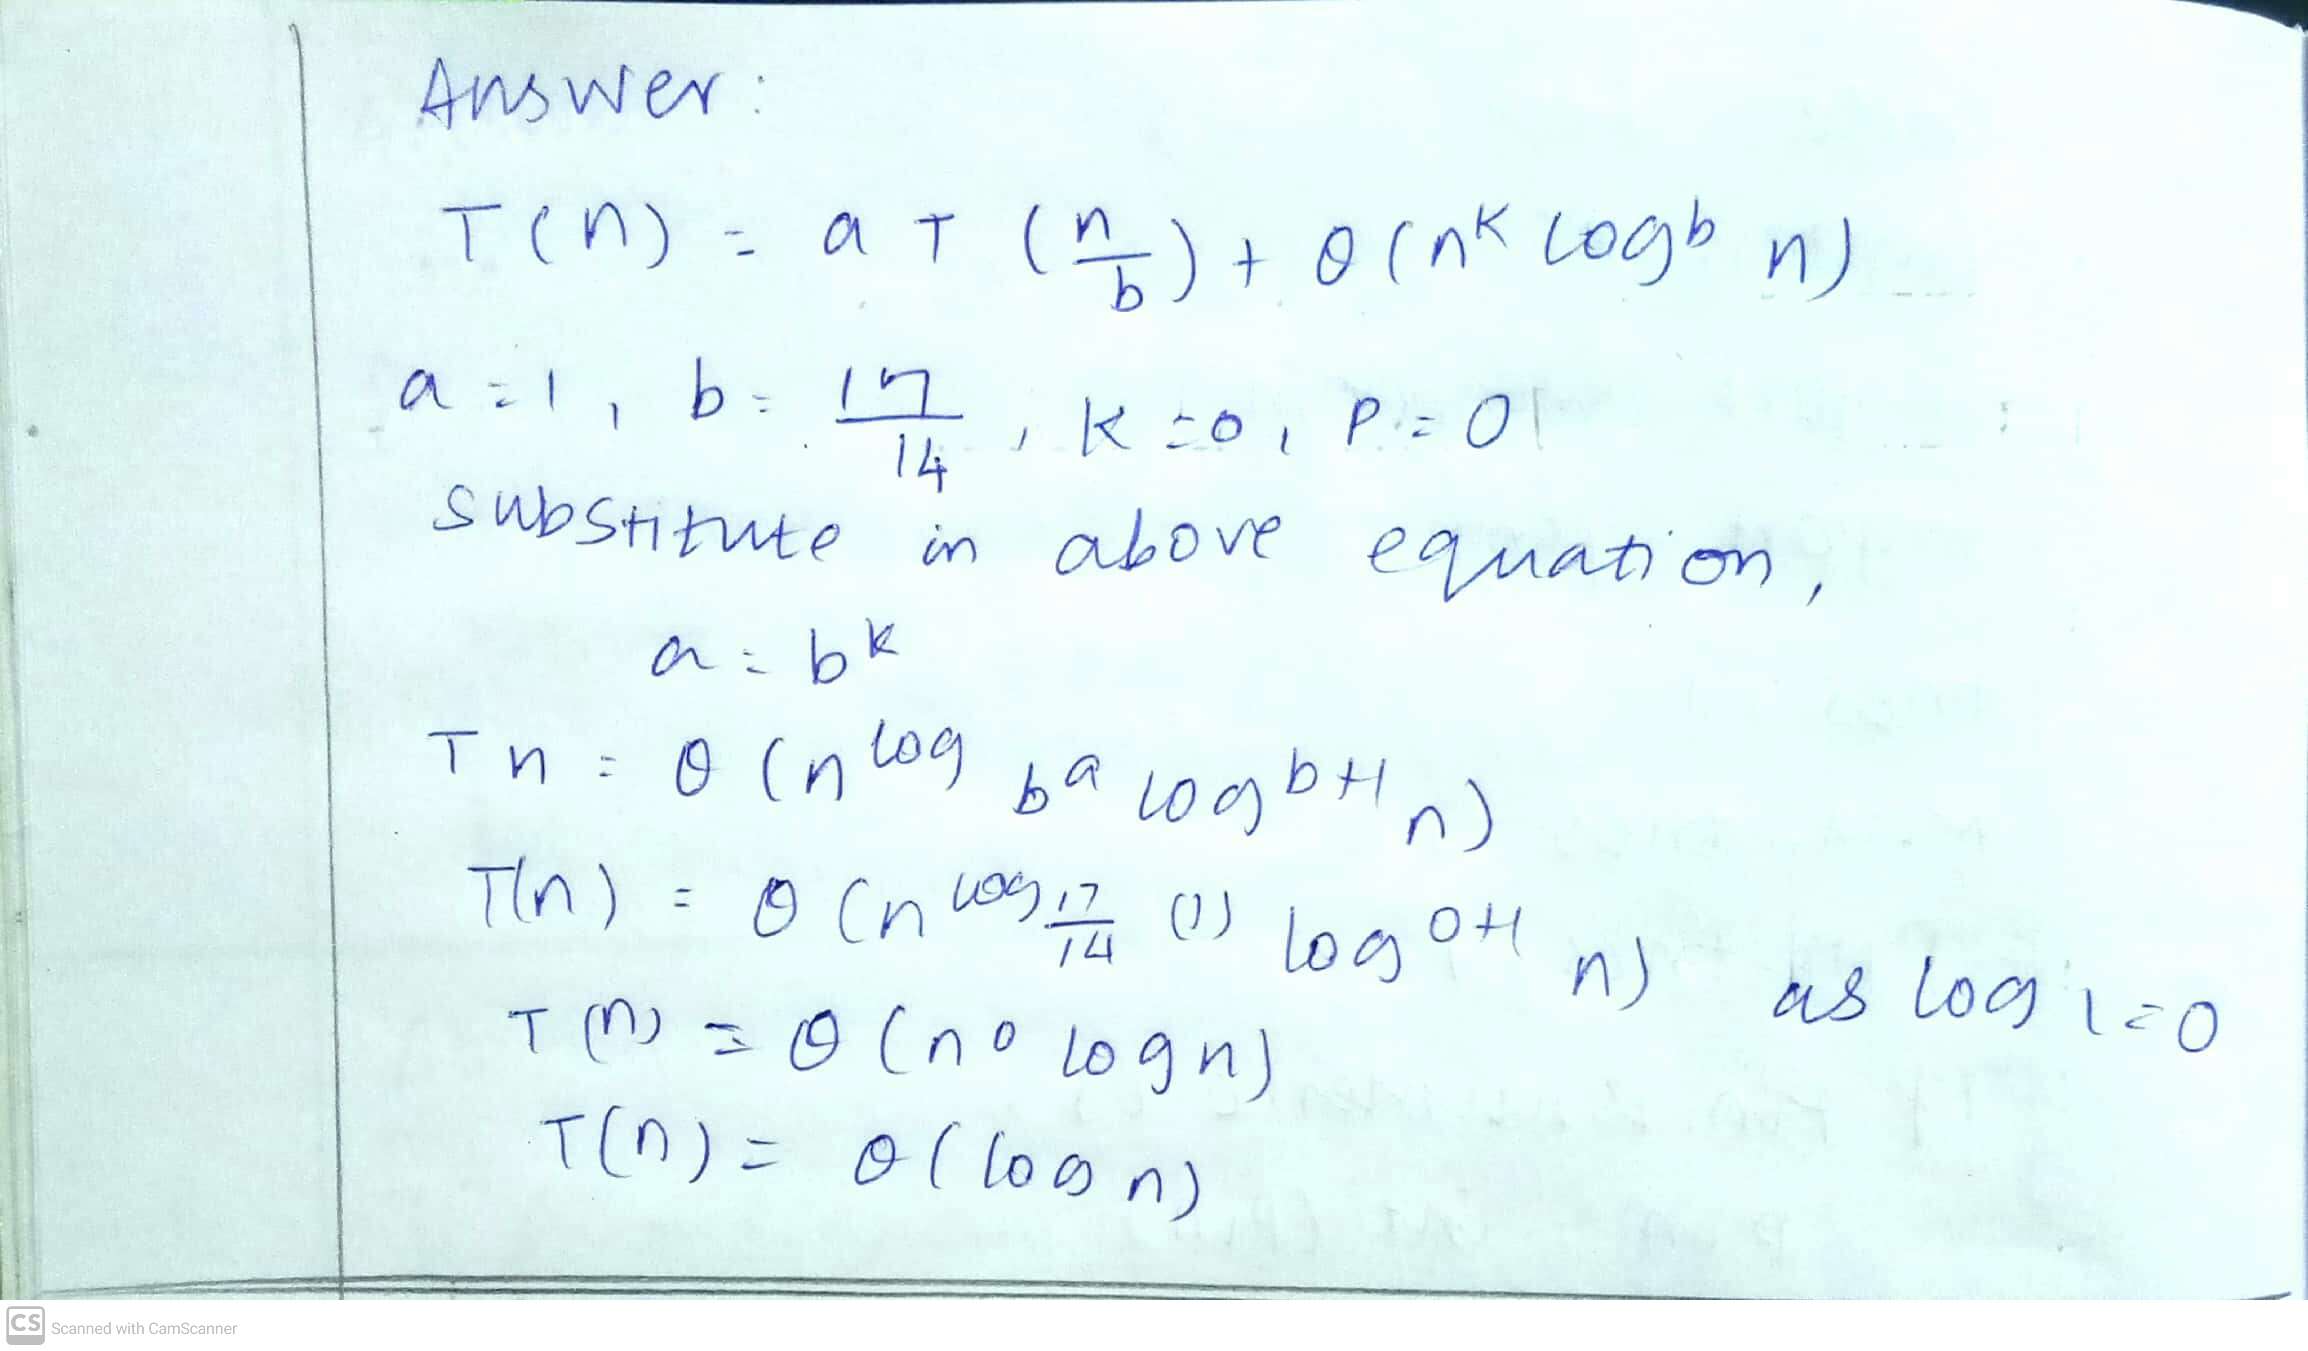 Answer:
T(n) = a T (n/b) + θ(n^k log^b n)
a=1, b= 17/14, k=0, P=0
substitute in above equation,
a=b^k
Tn = θ (n^log b^a log^b+1 n)
T(n) = θ (n^log 17/14 (1) log^0+1 n) as log 1=0
T(n) = θ (n^0 log n)
T(n) = θ(log n)
CS Scanned with CamScanner